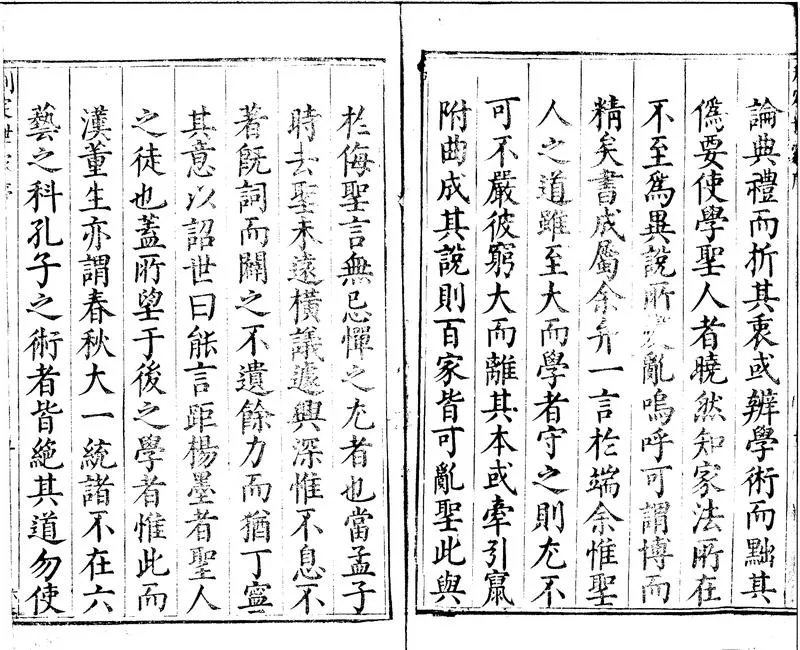 論典禮而折其衷或辨學術而黜其
僞要使學聖人者曉然知家法所在
不至爲異說所变亂嗚呼可謂博而
精矣書成屬余弁一言於端余惟聖
人之道雖至大而學者守之則尤不
可不嚴彼窮大而離其本或牽引竄
附曲成其說則百家皆可亂聖此與
於侮聖言無忌憚之尤者也當孟子
時去聖未遠橫議遽興深惟不息不
著旣詞而闢之不遺餘力而猶丁寧
其意以詔世曰能言距楊墨者聖人
之徒也蓋所望于後之學者惟此而
漢董生亦謂春秋大一統諸不在六
藝之科孔子之術者皆絕其道勿使